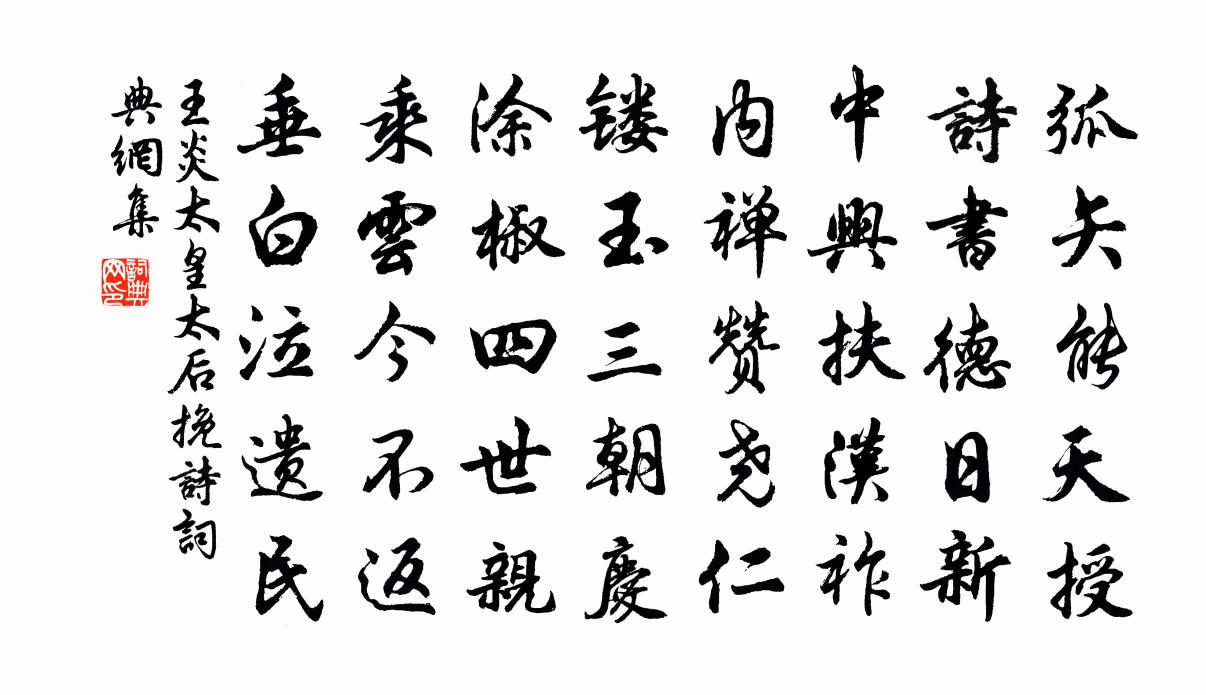 弧矢能天授
詩書德日新
中興扶漢祚
内禅赞尧仁
镂玉三朝慶
涂椒四世親
乘雲今不返
垂白泣遗民
王炎太皇太后挽詩詞
典網集
詞典網印